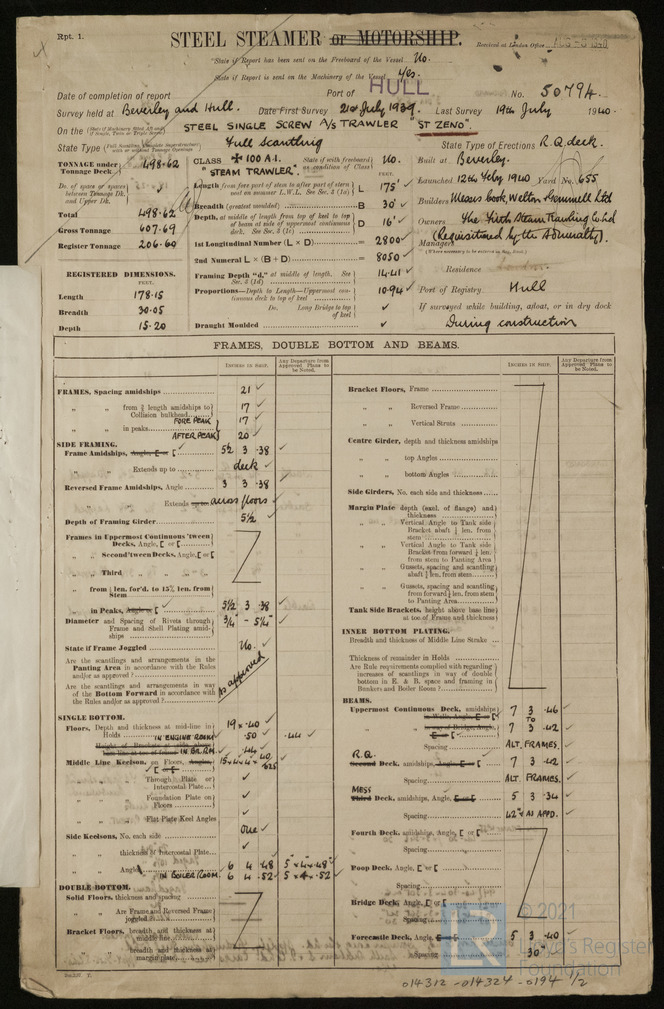 Rpt. 1.
STEEL STEAMER or MOTORSHIP.
Received at London Office
State if Report has been sent on the Freeboard of the Vessel No.
State if Report is sent on the Machinery of the Vessel Yes.
Date of completion of report
Port of HULL
No. 50794.
Survey held at Beverley and Hull. Date First Survey 21st July 1939. Last Survey 19th July 1940.
On the STEEL SINGLE SCREW A/S TRAWLER "ST ZENO".
State Type Full Scantling State Type of Erections R.Q. deck.
TONNAGE under Tonnage Deck 498.62
Do. of space or spaces between Tonnage Dk. and Upper Dk.
Total 498.62
Gross Tonnage 607.69
Register Tonnage 206.60
REGISTERED DIMENSIONS.
FEET.
Length 178.15
Breadth 30.05
Depth 15.20
CLASS ✠ 100 A.1. State if with freeboard as condition of Class No.
"STEAM TRAWLER".
FEET.
Length from fore part of stem to after part of stern post on summer L.W.L. See Sec. 3 (1a) L 175'
Breadth (greatest moulded) B 30'
Depth, at middle of length from top of keel to top of beam at side of uppermost continuous deck. See Sec. 3 (1c) D 16'
1st Longitudinal Number (L × D) = 2800
2nd Numeral L × (B + D) = 8050
Framing Depth "d," at middle of length. See Sec. 3 (1d) 14.41
Proportions—Depth to Length—Uppermost continuous deck to top of keel 10.94
Do. Long Bridge to top of keel
Draught Moulded
Built at Beverley.
Launched 12th Feby 1940 Yard No. 655
Builders Messrs Cook, Welton & Gemmell Ltd
Owners The Firth Steam Trawling Co Ltd
Managers (Requisitioned by the Admiralty).
(Where necessary to be entered in Reg. Book)
Residence London
Port of Registry Hull
If surveyed while building, afloat, or in dry dock
During construction
FRAMES, DOUBLE BOTTOM AND BEAMS.
INCHES IN SHIP.
Any Departure from Approved Plans to be Noted.
INCHES IN SHIP.
Any Departure from Approved Plans to be Noted.
FRAMES, Spacing amidships 21
" " from ⅗ length amidships to Collision bulkhead 17
" " in peaks FORE PEAK 17
AFTER PEAK 20
SIDE FRAMING.
Frame Amidships, Angle, E or [ 5½ 3 .38
" " Extends up to deck
Reversed Frame Amidships, Angle 3 3 .38
" " Extends up to across floors
Depth of Framing Girder 5½
Frames in Uppermost Continuous 'tween Decks, Angle, [ or [
" " Second 'tween Decks, Angle, [ or [
" " Third " " "
" " from ¼ len. for'd. to 15% len. from Stem
" " in Peaks, Angle or [ 5½ 3 .38
Diameter and Spacing of Rivets through Frame and Shell Plating amidships ¾ - 5¼"
State if Frame Joggled No.
Are the scantlings and arrangements in the Panting Area in accordance with the Rules and/or as approved ?
Are the scantlings and arrangements in way of the Bottom Forward in accordance with the Rules and/or as approved ?
As approved
SINGLE BOTTOM.
Floors, Depth and thickness at mid-line in Holds 19 × .40
IN ENGINE ROOM .50 .44
Height of Brackets at side above base line at toe of frame IN BR. RM. .44
Middle Line Keelson, on Floors, Angles, [ or [
" " Through Plate or Intercostal Plate
" " Foundation Plate on Floors
" " Flat Plate Keel Angles
Side Keelsons, No. each side One
" " thickness of Intercostal Plate
" " Angles 6 4 .48 5" × 4" × .48"
IN BOILER ROOM. 6 4 .52 5" × 4" × .52
DOUBLE BOTTOM.
Solid Floors, thickness and spacing
" " Are Frame and Reversed Frame joggled
Bracket Floors, breadth and thickness at middle line
" " breadth and thickness at margin plate
Bracket Floors, Frame
" " Reversed Frame
" " Vertical Struts
Centre Girder, depth and thickness amidships
" " top Angles
" " bottom Angles
Side Girders, No. each side and thickness
Margin Plate depth (excl. of flange) and thickness
" " Vertical Angle to Tank side Bracket abaft ¼ len. from stem
" " Vertical Angle to Tank side Bracket from forward ¼ len. from stem to Panting Area
" " Gussets, spacing and scantling abaft ¼ len. from stem
" " Gussets, spacing and scantling from forward ¼ len. from stem to Panting Area
Tank Side Brackets, height above base line at toe of Frame and thickness
INNER BOTTOM PLATING.
Breadth and thickness of Middle Line Strake
Thickness of remainder in Holds
Are Rule requirements complied with regarding increases of scantlings in way of double bottom in E. & B. space and framing in Bunkers and Boiler Rooms ?
BEAMS.
Uppermost Continuous Deck, amidships 7 3 .46
TO
7 3 .42
Spacing ALT. FRAMES.
R.Q.
Second Deck, amidships, Angle, E or [ 7 3 .42
Spacing ALT. FRAMES.
MESS
Third Deck, amidships, Angle, E or [ 5 3 .34
Spacing 42" & AS APPD.
Fourth Deck, amidships, Angle, [ or [
Spacing
Poop Deck, Angle, [ or [
Spacing
Bridge Deck, Angle, [ or [
Spacing
Forecastle Deck, Angle, E or [ 5 3 .40
Spacing 30"
© 2021
Lloyd's Register
Foundation
014312 - 014324 - 0194 1/2